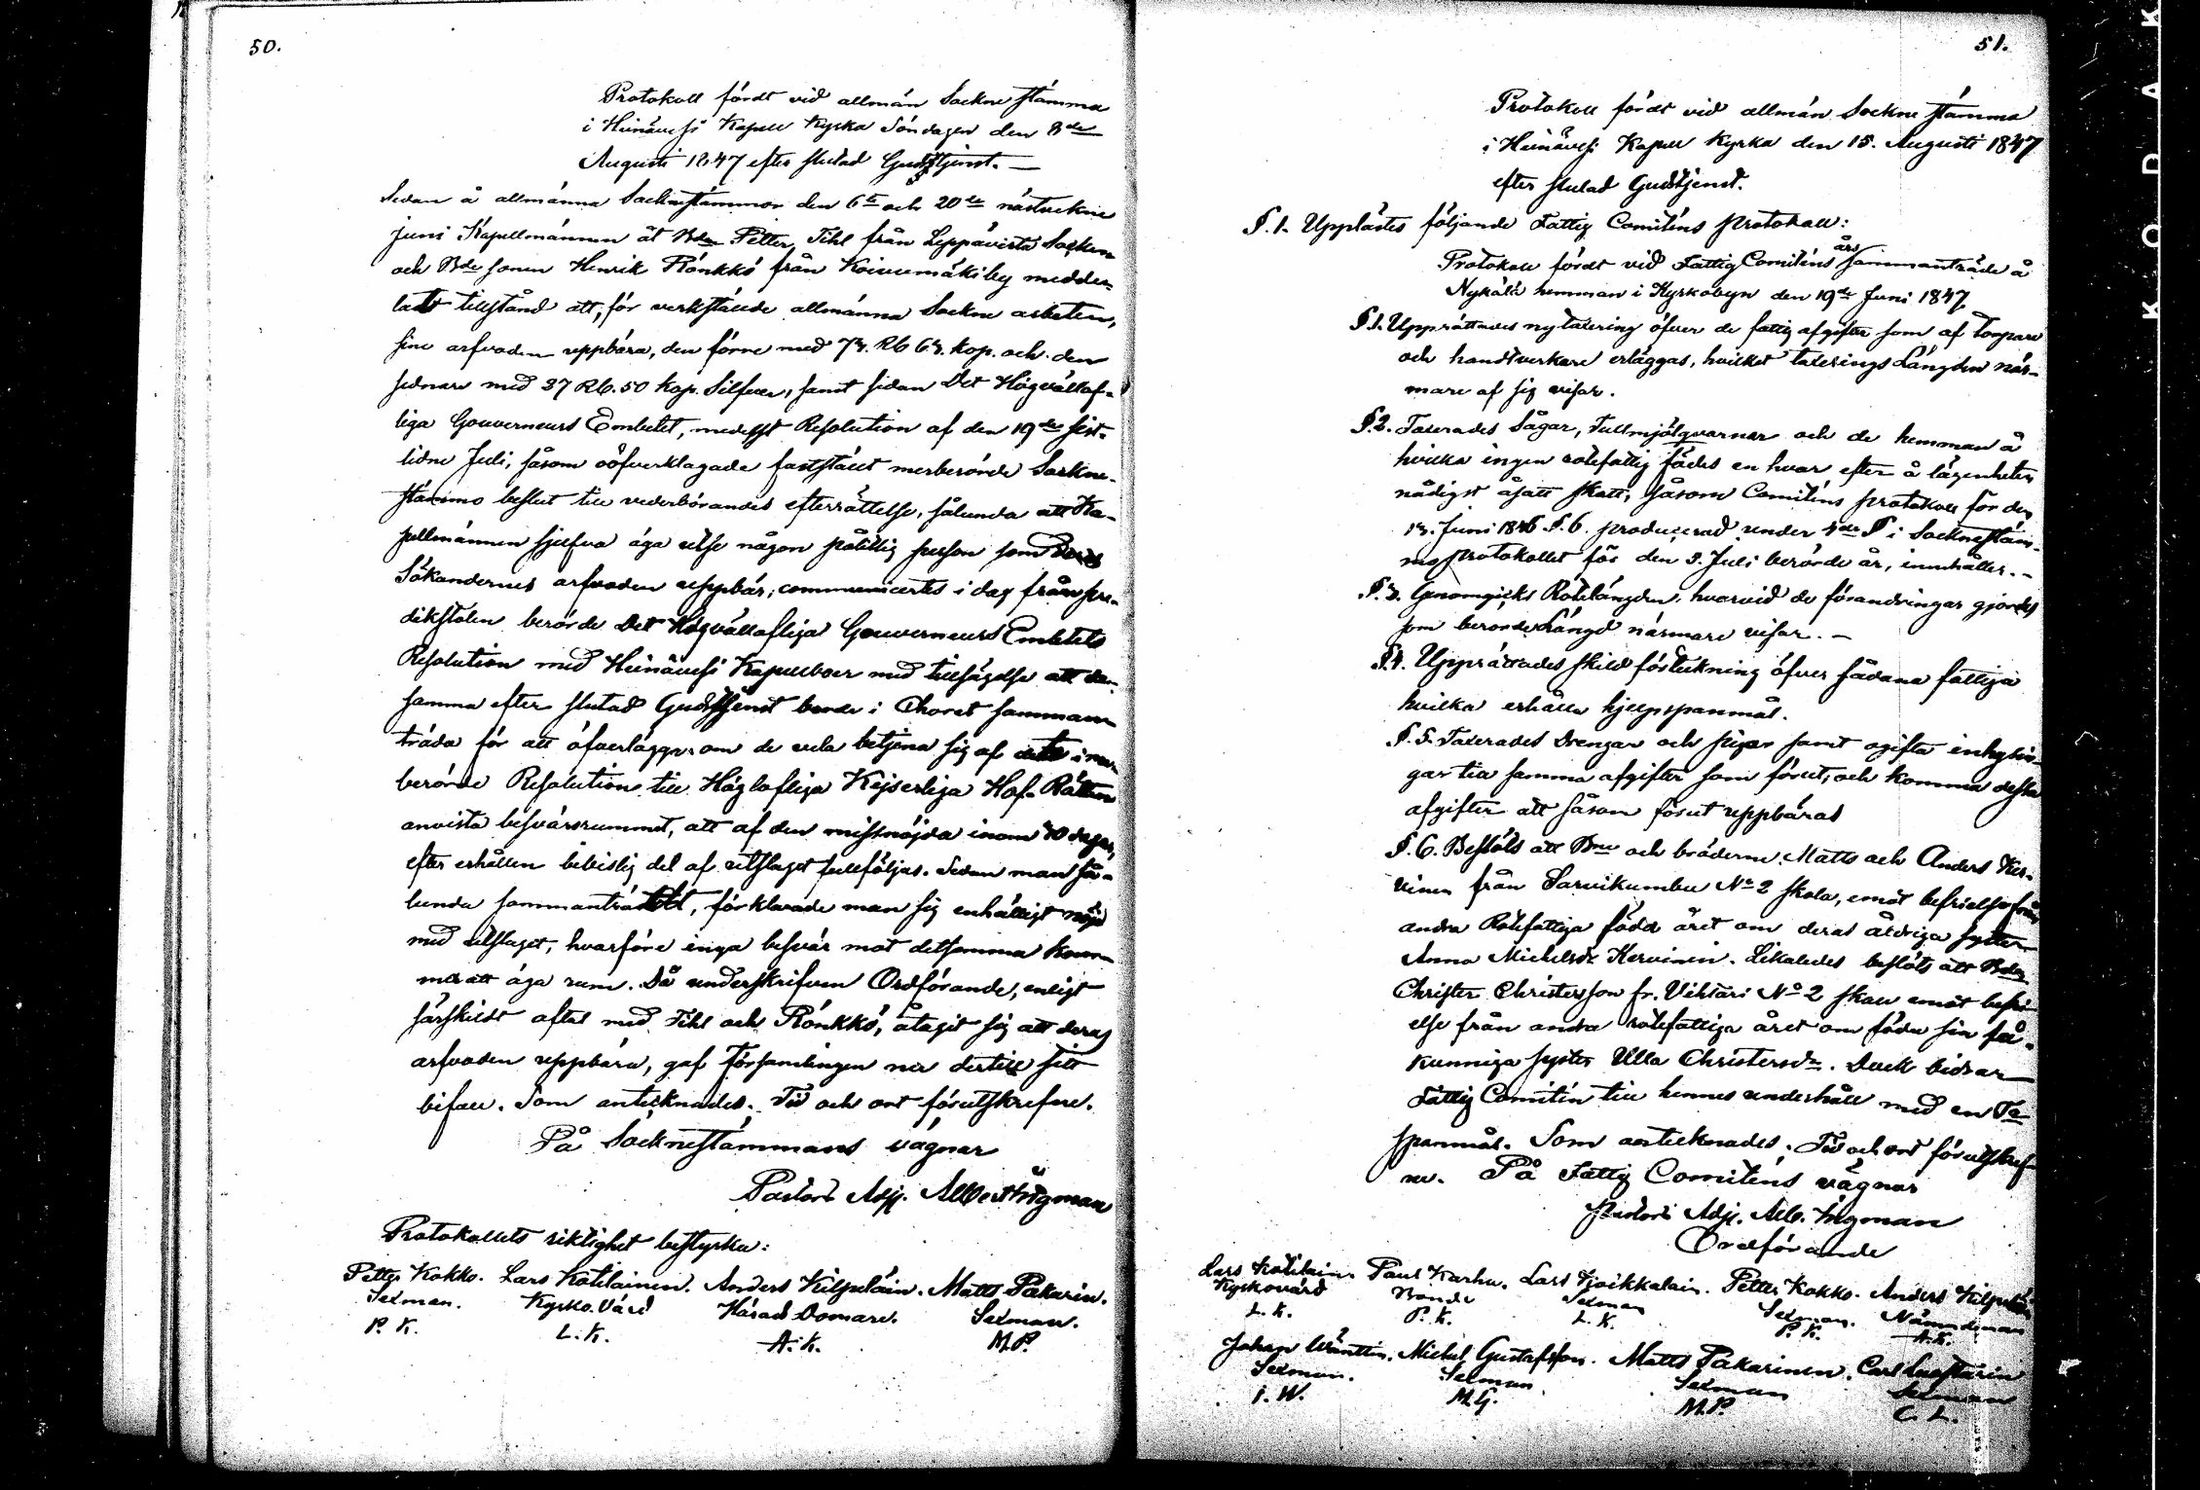 50.
Protokoll fördt vid allmän Sockne stämma
i Heinävesi Kapell Kyrka Söndagen den 8de
Augusti 1847 efter slutad Gudstjenst. —
Sedan å allmänna Socknestämmor den 6te och 20de nästvekne
Juni Kapellmännen åt Bde Petter Tihl från Leppävirta Socken
och Bde sonen Henrik Rönkkö från Koivumäki by medde-
lat tillstånd att, för verkstälde allmänna Sockne arbeten,
sine arfvoden uppbära, den förre med 73. Rb 63. kop. och den
sednare med 37 Rb. 50 kop. Silfver, samt sedan Det Högvällof-
liga Gouverneurs Embetet, medelst Resolution af den 19de sist-
lidne Juli, såsom oöfverklagade fastställt merberörde Sockne-
stämmo beslut till vederbörandes efterrättelse, sålunda att Ka-
pellmännen sjelfva äga utse någon pålitlig person som
Sökandernes arfvoden uppbär; communicertes i dag från pre-
dikstolen berörde Det Högvällofliga Gouverneurs Embetets
Resolution med Heinävesi Kapellboer med tillsägelse att den-
samma efter slutad Gudstjenst borde i Choret samman
träda för att öfverlägga om de vela betjena sig af det i mer
berörde Resolution till Höglofliga Kejserliga Hof-Rätten
anvista besvärsrummet, att af den missnöjda inom 30 dagar,
efter erhållen bevislig del af utslaget fullföljas. Sedan man så-
lunda sammanträdt, förklarade man sig enhälligt nöjd
med utslaget, hvarföre inga besvär mot detsamma kom-
mer att äga rum. Då underskrifven Ordförande, enligt
särskildt aftal med Tihl och Rönkkö, åtagit sig att deras
arfvoden uppbära, gaf Församlingen nu dertill sitt
bifall. Som antecknades. Tid och ort förutskrefne.
På Socknestämmans vägnar
Pastors Adj. Albert Ingman
Protokollets riktighet bestyrka:
Petter Kokko. Lars Kotilainen. Anders Kilpeläin. Matts Pakarin.
Sexman. Kyrko Värd Härads Domare. Sexman.
P. K. L. K. A. K. M. P.
51.
Protokoll fördt vid allmän Sockne stämma
i Heinävesi Kapell Kyrka den 15. Augusti 1847
efter slutad Gudstjenst.
§. 1. Upplästes följande Fattig Comiténs protokoll:
Protokoll fördt vid Fattig Comiténs års sammanträde å
Nykälä hemman i Kyrkobyn den 19de Juni 1847.
§ 1. Upprättades ny taxering öfver de fattig afgifter som af Torpare
och handtverkare erläggas, hvilket taxerings Längden när-
mare af sig visar.
§. 2. Taxerades Sågar, Tullmjölqvarnar och de hemman å
hvilka ingen rotefattig födes en hvar efter å lägenheten
nådigst åsatt skatt, såsom Comiténs protokoll för den
13. Juni 1846 §. 6. producerad under 4de § i Socknestäm-
mo protokollet för den 3. Juli berörde år, innehåller. —
§. 3. Genomgicks Rotelängden, hvarvid de förändringar gjordes
som berörde Längd närmare visar. —
§ 4. Upprättades skild förteckning öfver sådana fattiga
hvilka erhålla hjelpspanmål.
§. 5. Taxerades Drengar och pigor samt ogifta inhysin-
gar till samma afgifter som förut, och komma dessa
afgifter att såsom förut uppbäras
§. 6. Beslöts att Bne och bröderne Matts och Anders Ker-
vinen från Sarvikumbu No 2 skola, emot befrielse från
andra Rotefattiga föda året om deras åldriga syster
Anna Michelsdr Kervinen. Likaledes beslöts att Bden
Christer Christersson fr. Vihtari No 2 skall emot befri-
else från andra rotefattiga året om föda sin få-
kunniga syster Ulla Christersdr. Dock bidrar
Fattig Comitén till hennes underhåll med en Ta
spanmål. Som antecknades. Tid och ort förutskref-
ne. På Fattig Comiténs vägnar
Pastors Adj. Alb. Ingman
Ordförande
Lars Kotilain. Paul Karhu. Lars Kjoikkalain. Petter Kokko. Anders Kilpeläin
Kyrkovärd Bonde Sexman Sexman. Nämndeman
L. K. P. K. L. K. P. K. A. K.
Johan Wänttin. Michel Gustafsson. Matts Pakarinen. Carl
Sexman. Sexman. Sexman Sexman
I. W. M. G. M. P. C. L.
KODAK